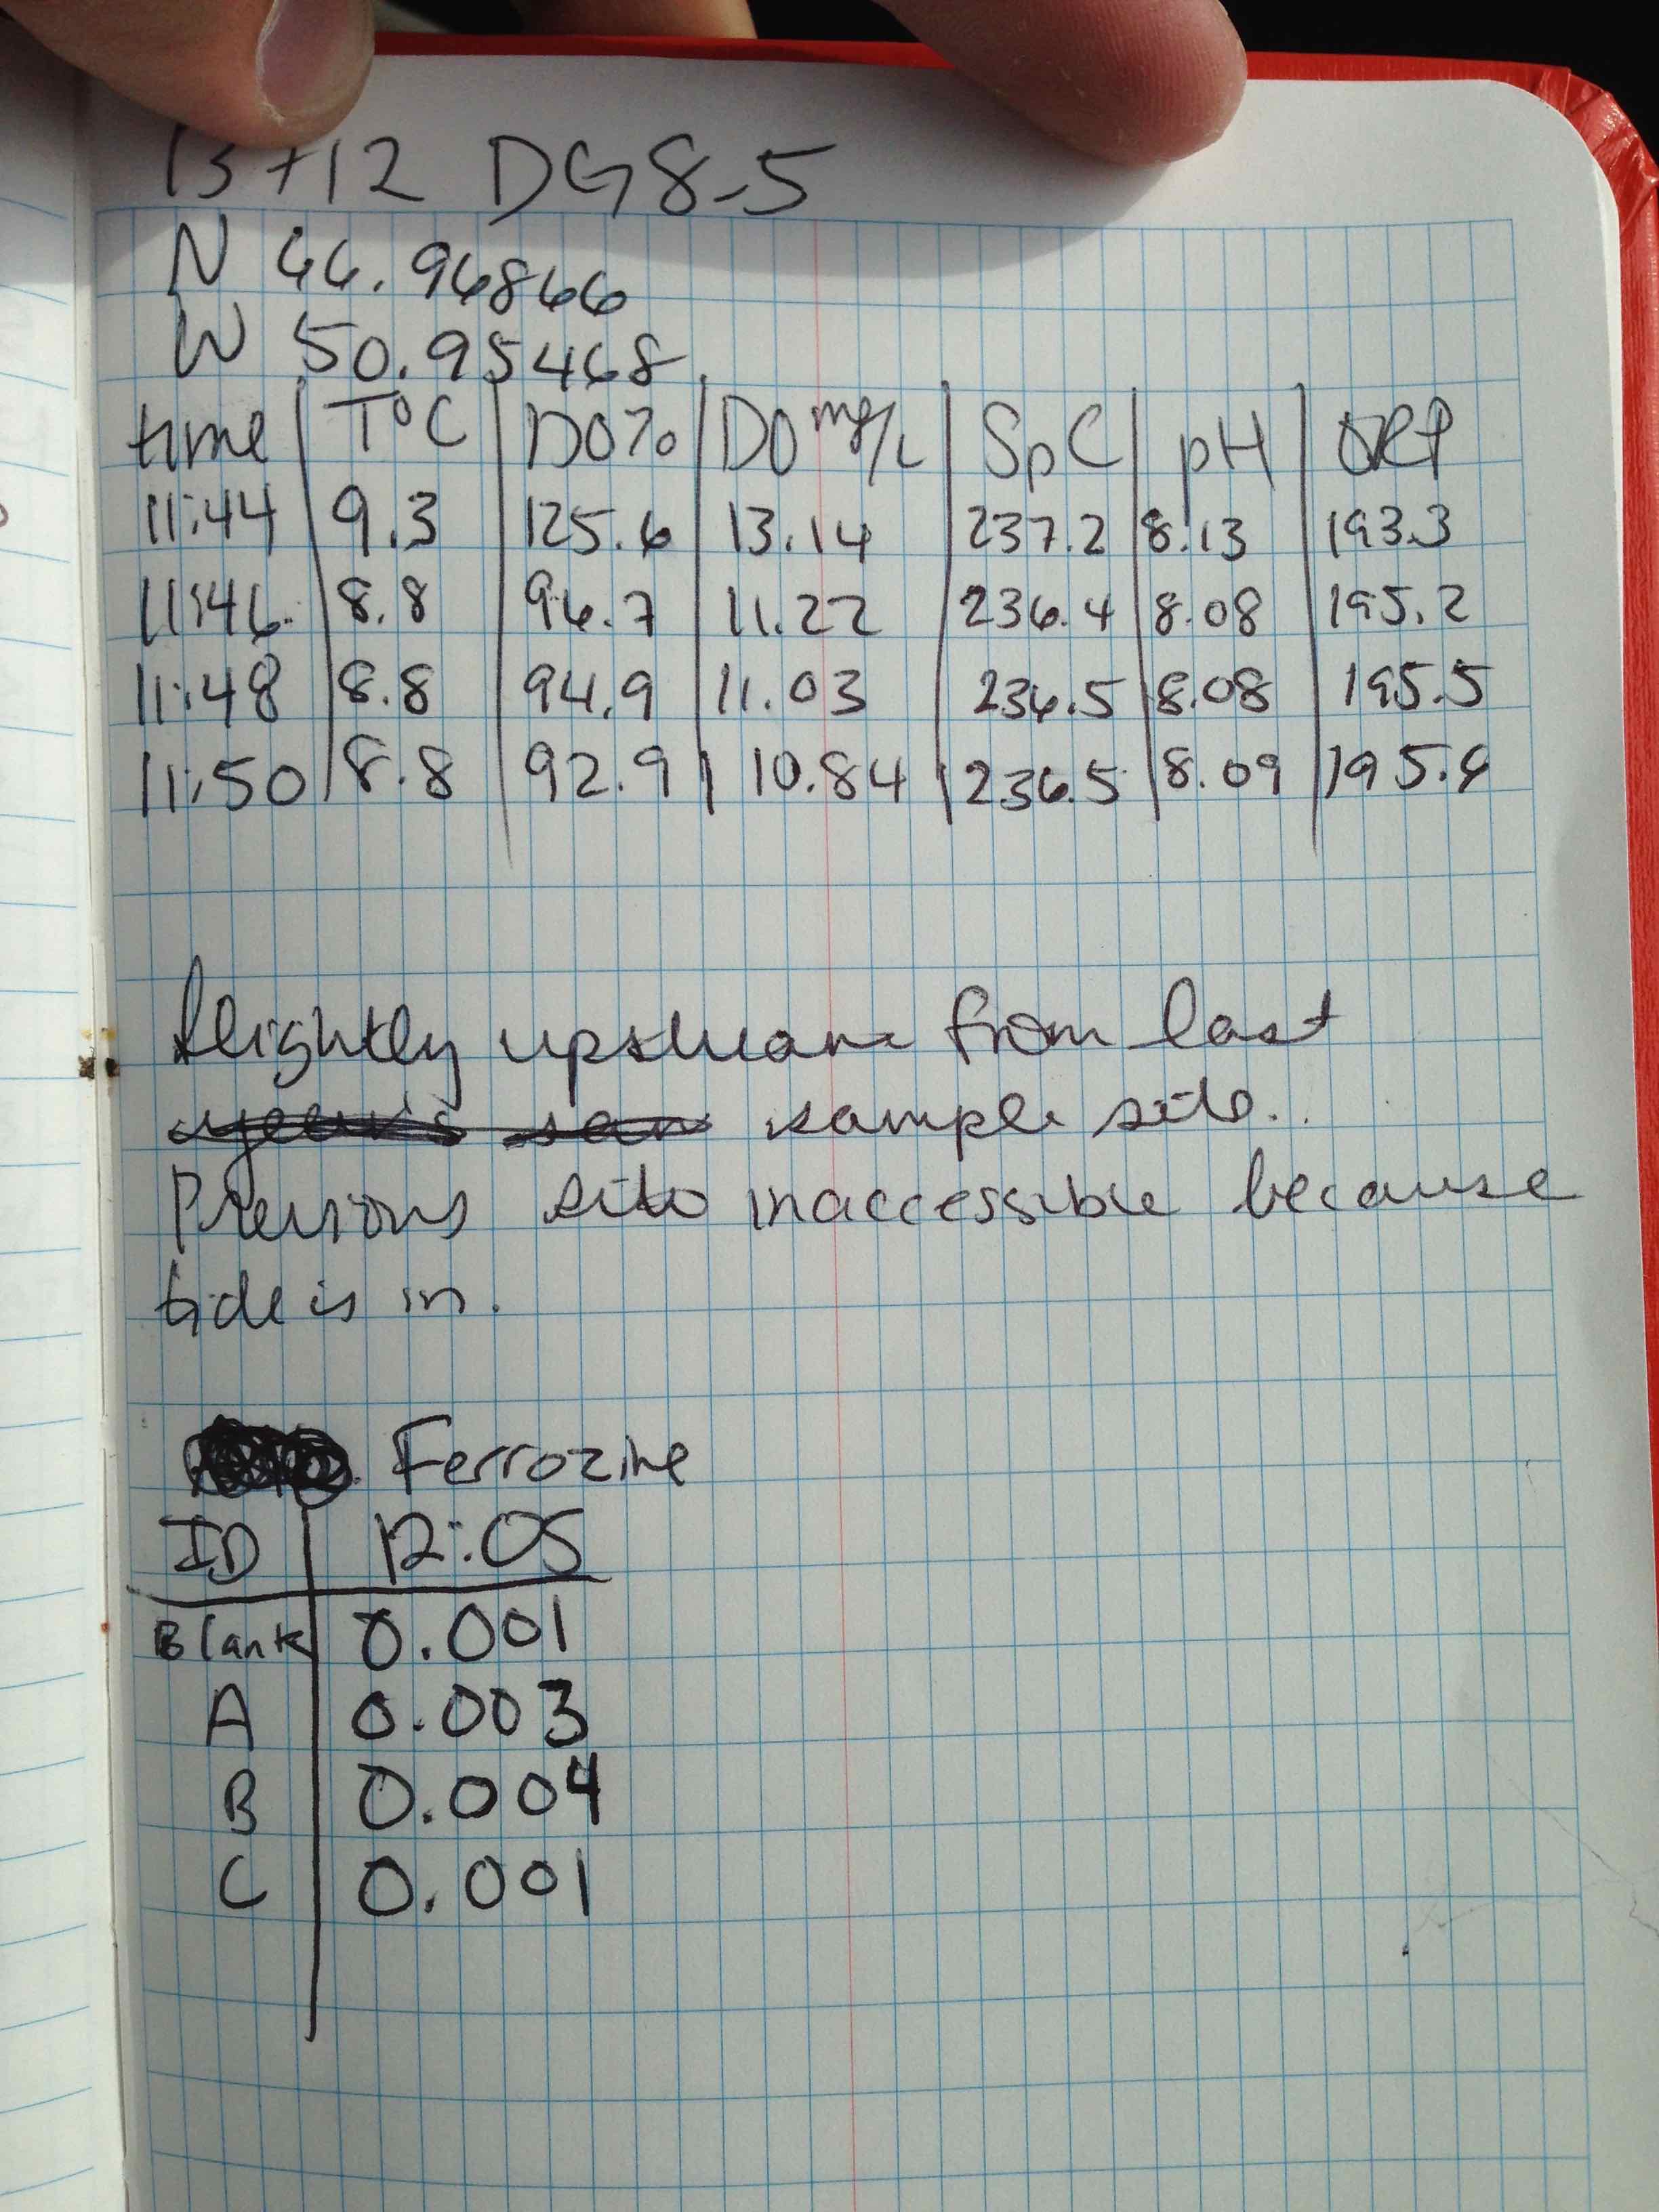 13+12 DG8-5
N 66.96866
W 50.95468
time T°C DO% DO mg/L SpC pH ORP
11:44 9.3 125.6 13.14 237.2 8.13 193.3
11:46 8.8 96.7 11.22 236.4 8.08 195.2
11:48 8.8 94.9 11.03 236.5 8.08 195.5
11:50 8.8 92.9 10.84 236.5 8.09 195.6
Slightly upstream from last
sample site.
Previous site inaccessible because
tide is in.
Ferrozine
ID 12:05
Blank 0.001
A 0.003
B 0.004
C 0.001